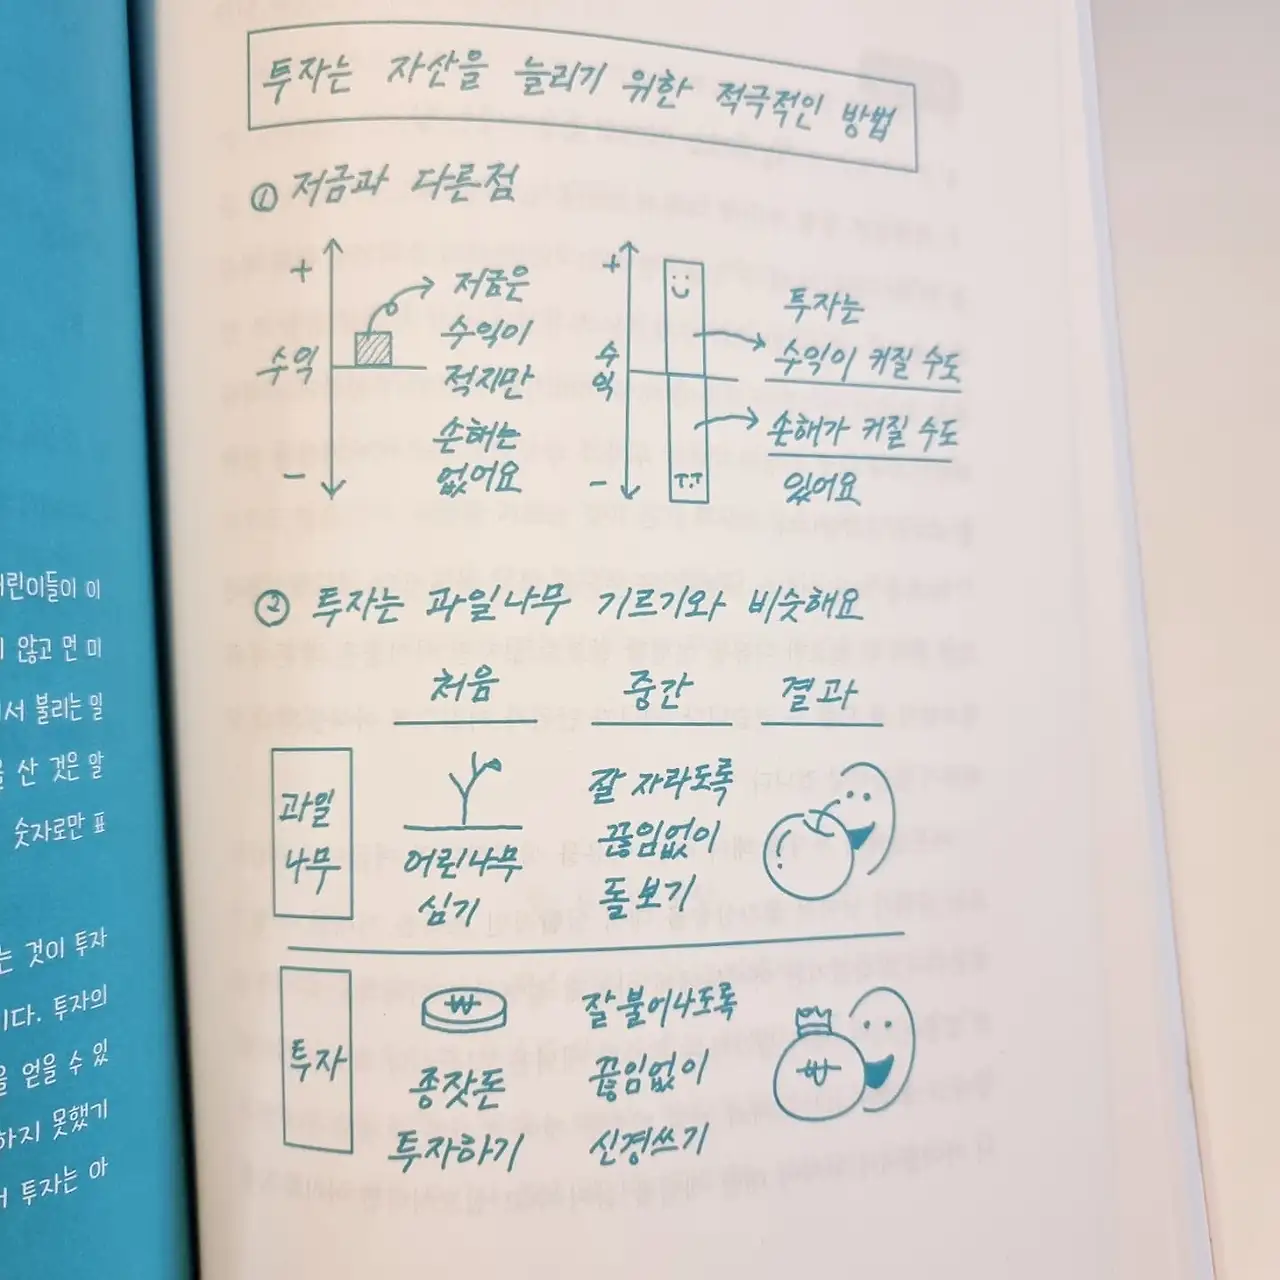 투자는 자산을 늘리기 위한 적극적인 방법
① 저금과 다른점
+
수익
-
저금은
수익이
적지만
손해는
없어요
+
수
익
-
투자는
수익이 커질 수도
손해가 커질 수도
있어요
T.T
② 투자는 과일나무 기르기와 비슷해요
처음 중간 결과
과일
나무
어린나무
심기
잘 자라도록
끊임없이
돌보기
투자
₩
종잣돈
투자하기
잘 불어나도록
끊임없이
신경쓰기
₩
어린이들이 이
않고 먼 미
서 불리는 일
산 것은 알
숫자로만 표
는 것이 투자
니다. 투자의
을 얻을 수 있
하지 못했기
투자는 아